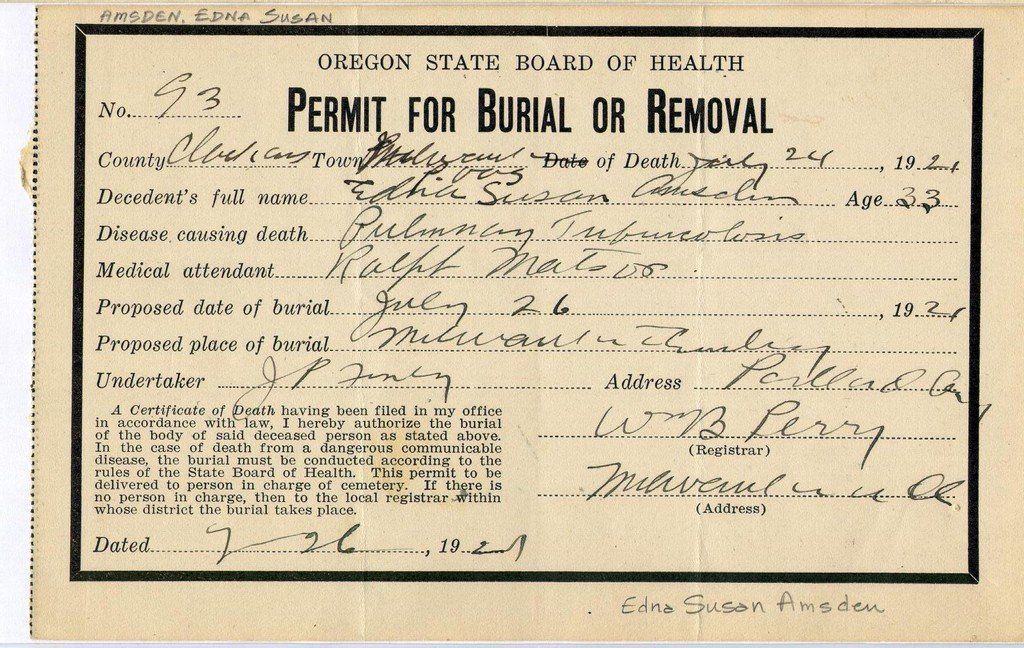 AMSDEN, EDNA SUSAN
OREGON STATE BOARD OF HEALTH
No. 93
PERMIT FOR BURIAL OR REMOVAL
County Clackamas Town Milwaukie Date of Death July 24, 1921
Decedent's full name Edna Susan Amsden Age 33
Disease causing death Pulmnary Tuburcolosis
Medical attendant Ralph Matson
Proposed date of burial July 26, 1921
Proposed place of burial Milwaukie
Undertaker J P Finley Address Portland
A Certificate of Death having been filed in my office
in accordance with law, I hereby authorize the burial
of the body of said deceased person as stated above.
In the case of death from a dangerous communicable
disease, the burial must be conducted according to the
rules of the State Board of Health. This permit to be
delivered to person in charge of cemetery. If there is
no person in charge, then to the local registrar within
whose district the burial takes place.
Wm B Perry
(Registrar)
Milwaukie
(Address)
Dated 7-26, 1921
Edna Susan Amsden